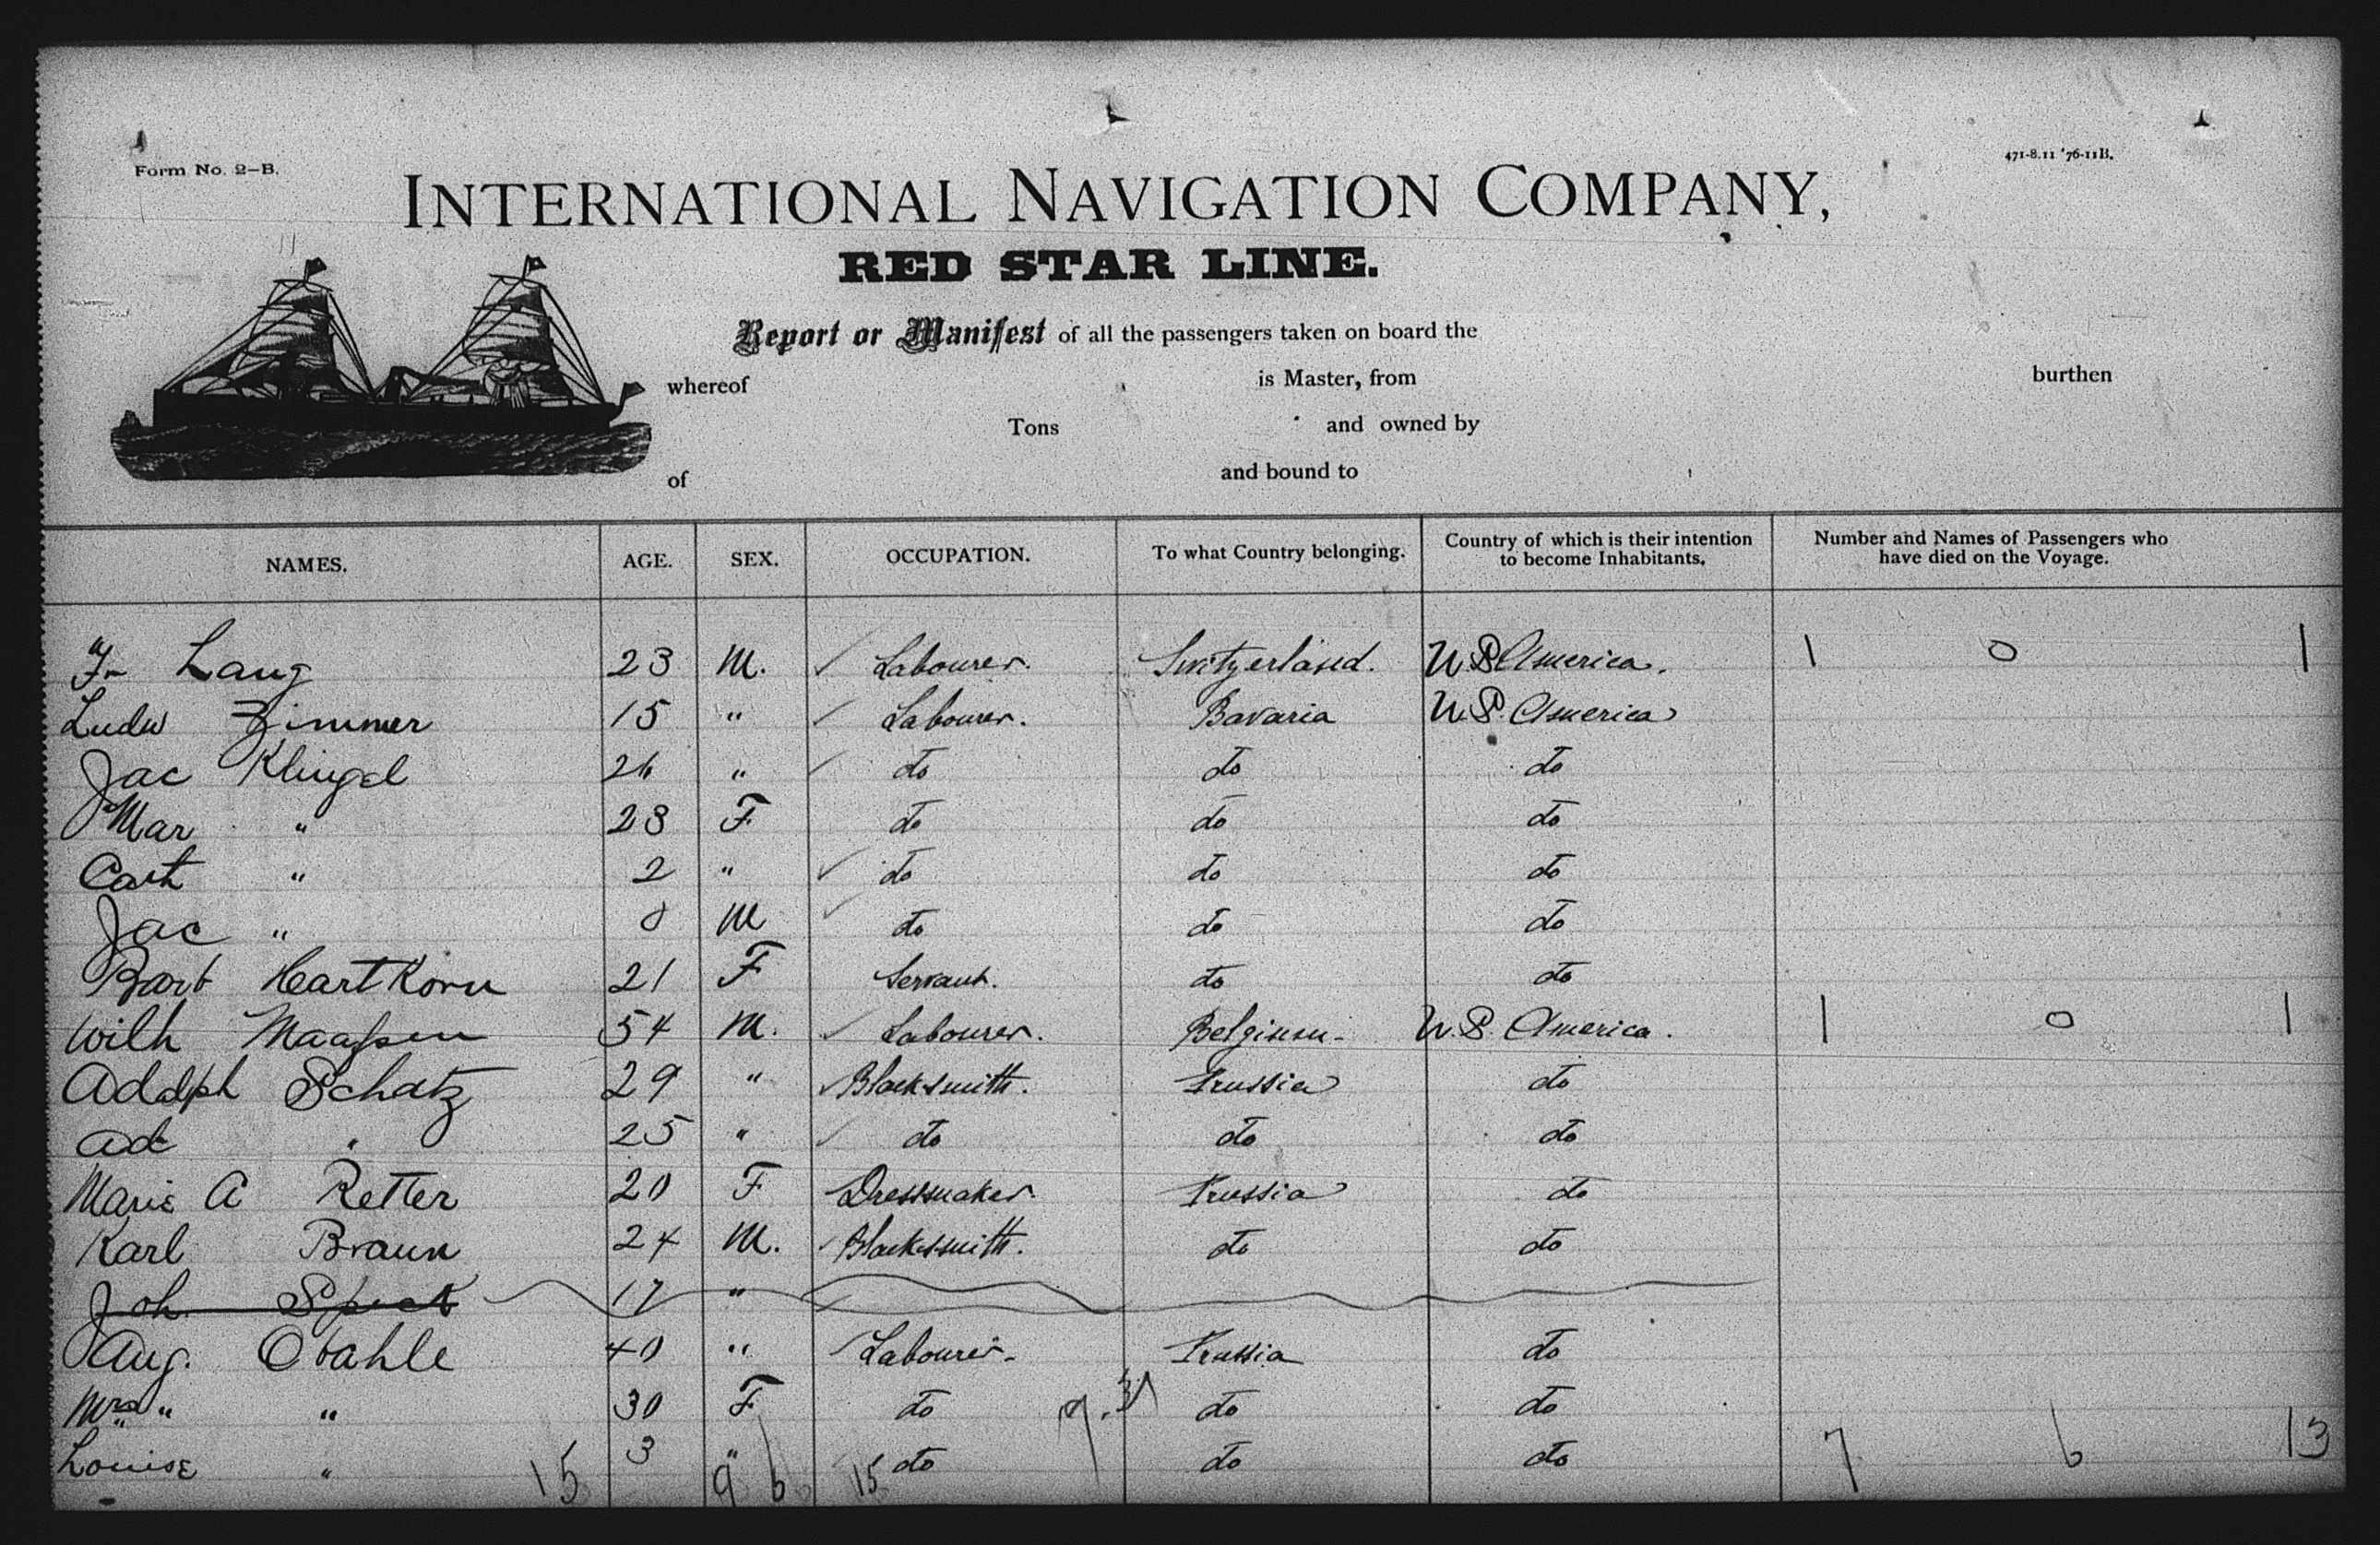 Form No. 2-B.
471-8.11 '76-11B.
INTERNATIONAL NAVIGATION COMPANY,
RED STAR LINE.
Report or Manifest of all the passengers taken on board the
whereof is Master, from burthen
Tons and owned by
of and bound to
NAMES. AGE. SEX. OCCUPATION. To what Country belonging. Country of which is their intention to become Inhabitants. Number and Names of Passengers who have died on the Voyage.
Fr Lang 23 M. Labourer. Switzerland. U.S America. 1 0 1
Ludw Zimmer 15 " Labourer. Bavaria U.S. America
Jac Klingel 26 " do do do
Mar " 28 F do do do
Cath " 2 " do do do
Jac " M do do do
Barb Heartkorn 21 F Servant. do do
Wilh Maassen 54 M. Labourer. Belgium - U.S. America. 1 0 1
Adolph Schatz 29 " Blacksmith. Prussia do
Ad " 25 " do do do
Marie A Retter 20 F Dressmaker. Prussia do
Karl Braun 24 M. Blacksmith. do do
Joh. 17 "
Aug. 40 " Labourer - Prussia do
Mrs " " 30 F do do do
Louise " 3 " do do do
15 9 6 15 7 6 13